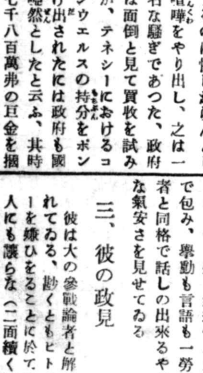 喧嘩をやり出し、之は一
名な騒ぎであつた、政府
は面倒と見て買收を試み
が、テネシーにおけるコ
ンウエルスの持分をポン
け出されたには政府も國
唖然としたと云ふ、其時
七千八百萬弗の巨金を摑
で包み、擧動も言語も一勞
者と同格で話しの出來るや
な氣安さを見せてゐる
三、彼の政見
彼は大の參戰論者と解
れてゐる、尠くともヒト
ーを嫌ひをることに於て
人にも讓らな（二面續く